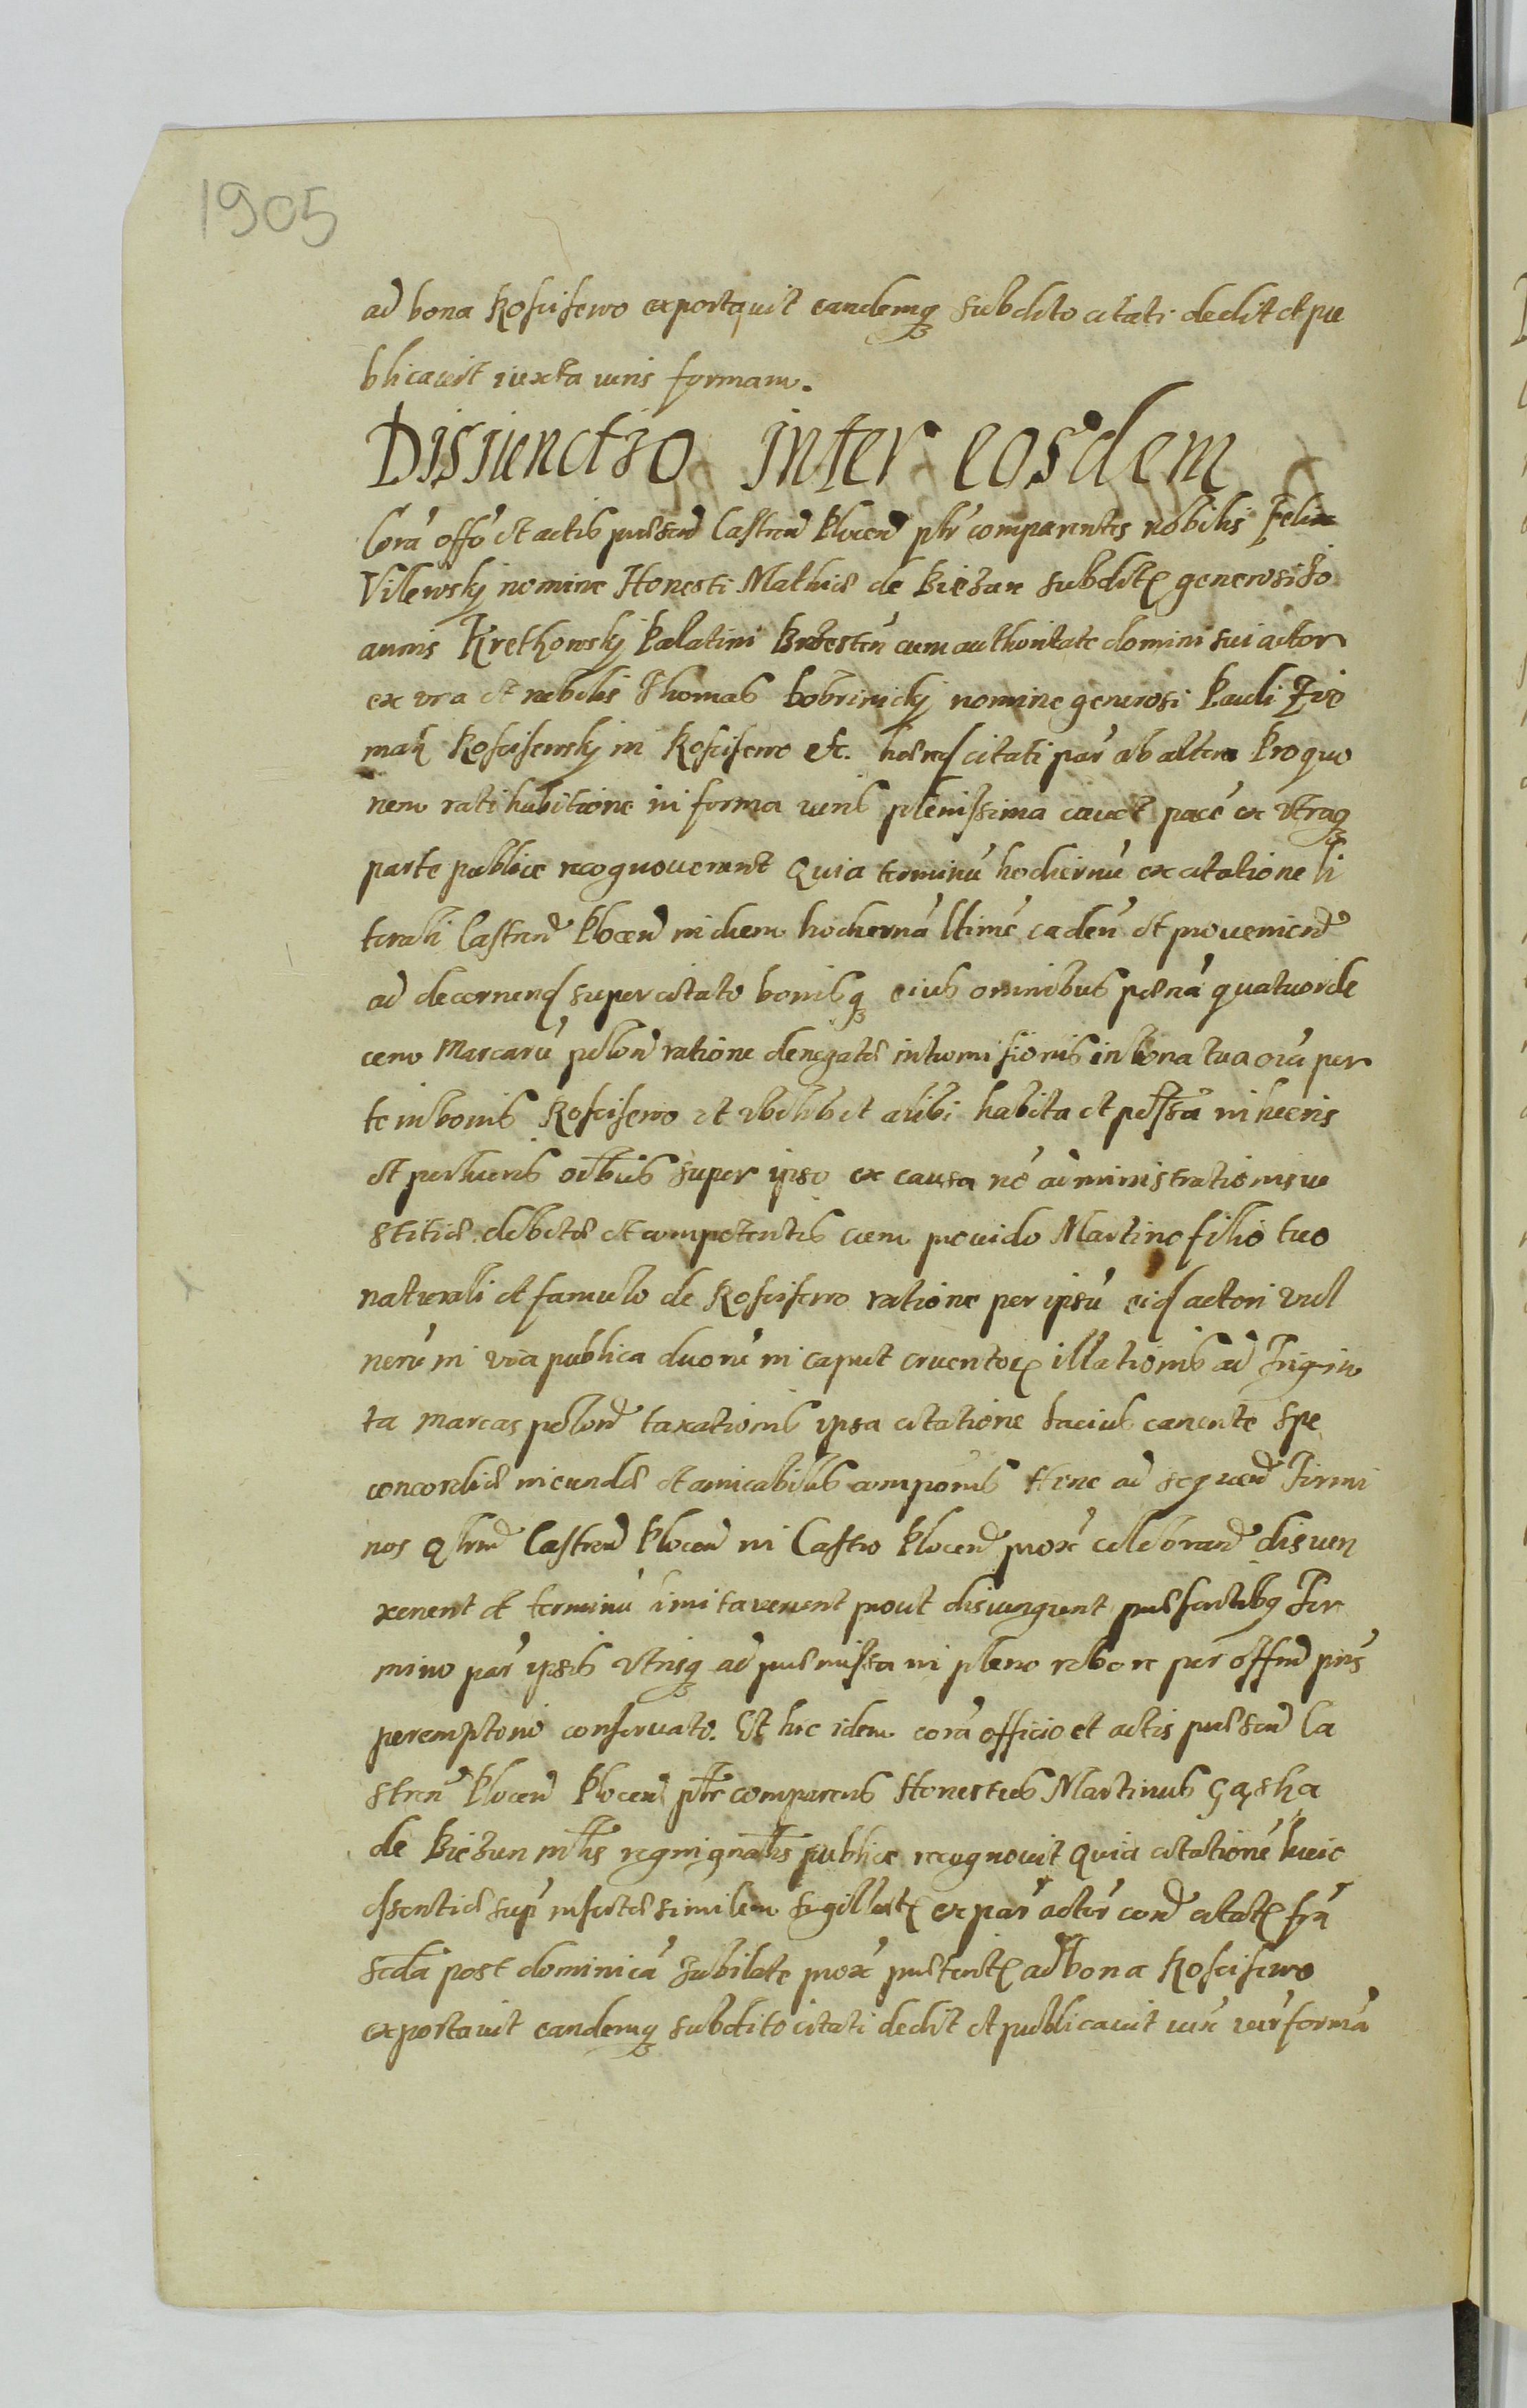 1905
ad bona Kosciserwo exportavit eandemq subdito citati dedit et pu
blicavit iuxta iuris formam.
Disiunctio inter eosdem
Corā offō et actis pntē Castren Plocen psr comparentes nobilis Felix
Vilewskj nomine Honesti Mathiæ de Biezun subdit generosi Jo
annis Krethowskj Palatini Brzesten cum authoritate domini sui actor
ex vna et nobilis Thomas bobrinickj nomine generosi Pauli
Koscisewskj in Koscisewo etc. hæred citati par ab altera Pro quo
nem ratihabitione in forma iuris plenissima cavet pace ex vtraq
parte publice recognoverunt Quia terminū hodiernū ex citatione li
terali Castren Plocen in diem hodiernā ltimē caden et provenien
ad decernend super citato bonisq eius omnibus pœnā quatuorde
cem Marcarū polon ratione denegatæ intromissionis in bona tua oīa per
te in bonis Koscisewo et vbilibet alibi habita et possā in hæris
et perhæris oībus super ipso ex causa nō administrationis iu
stitiæ debitæ et competentis cum provido Martino filio tuo
naturali et famulo de Koscisewo ratione per ipsū eid actori vul
nerū in via publica duorū in caput cruentor illationis ad Trigin
ta marcas polon taxationis ipsa citatione lacius canente spe
concordiæ ineundæ et amicabilis componis Hinc ad sequen Termi
nos Qlrm Castren Plocen in Castro Plocen prox celebran disiun
xerunt et terminū limitaverunt prout disiungunt præsentibq Ter
mino par ipsis vtrisq ad præmissa in pleno robore per offm pns
peremptorio conservato. Et hic idem corā officio et actis præsen Ca
stren Plocen Plocen psr comparens Honestus Martinus Gąska
de Biezun mīs regni gnālis publice recognovit Quia citationē huic
essentiæ supr insertæ similem sigillat ex par actor con citat frā
scdā post dominicā Jubilate prox præterit ad bona Koscisewo
exportavit eandemq subdito citati dedit et publicavit iux iur formā